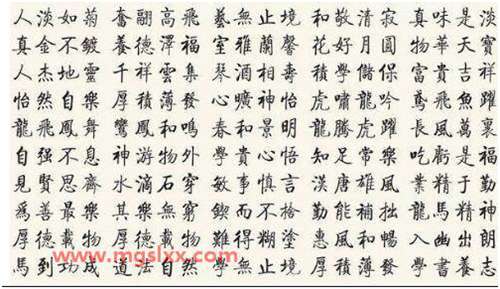 人淡如菊 奮翮高飛 藝無止境 和敬清寂 真味是淡
真金不鍍 養德澤福 室雅蘭馨 花好月圓 物華天寶
人杰地靈 千祥雲集 琴酒相壽 積學儲保 富貴吉祥
怡然自樂 厚積薄發 心曠神怡 虎嘯龍吟 鳶飛魚躍
龍飛鳳舞 鸞鳳和鳴 春和景明 龍騰虎躍 長風萬裏
自强不息 神游物外 學貴心悟 知足常樂 吃虧是福
見賢思齊 水滴石穿 敏事慎言 漢唐雄風 業精于勤
爲善最樂 其樂無窮 鍥而不捨 勤能補拙 龍馬精神
厚德載物 厚德載物 難得糊塗 惠風和暢 入幽出朗
www.mgslxx.com
馬到功成 道法自然 學無止境 厚積薄發 學書養志